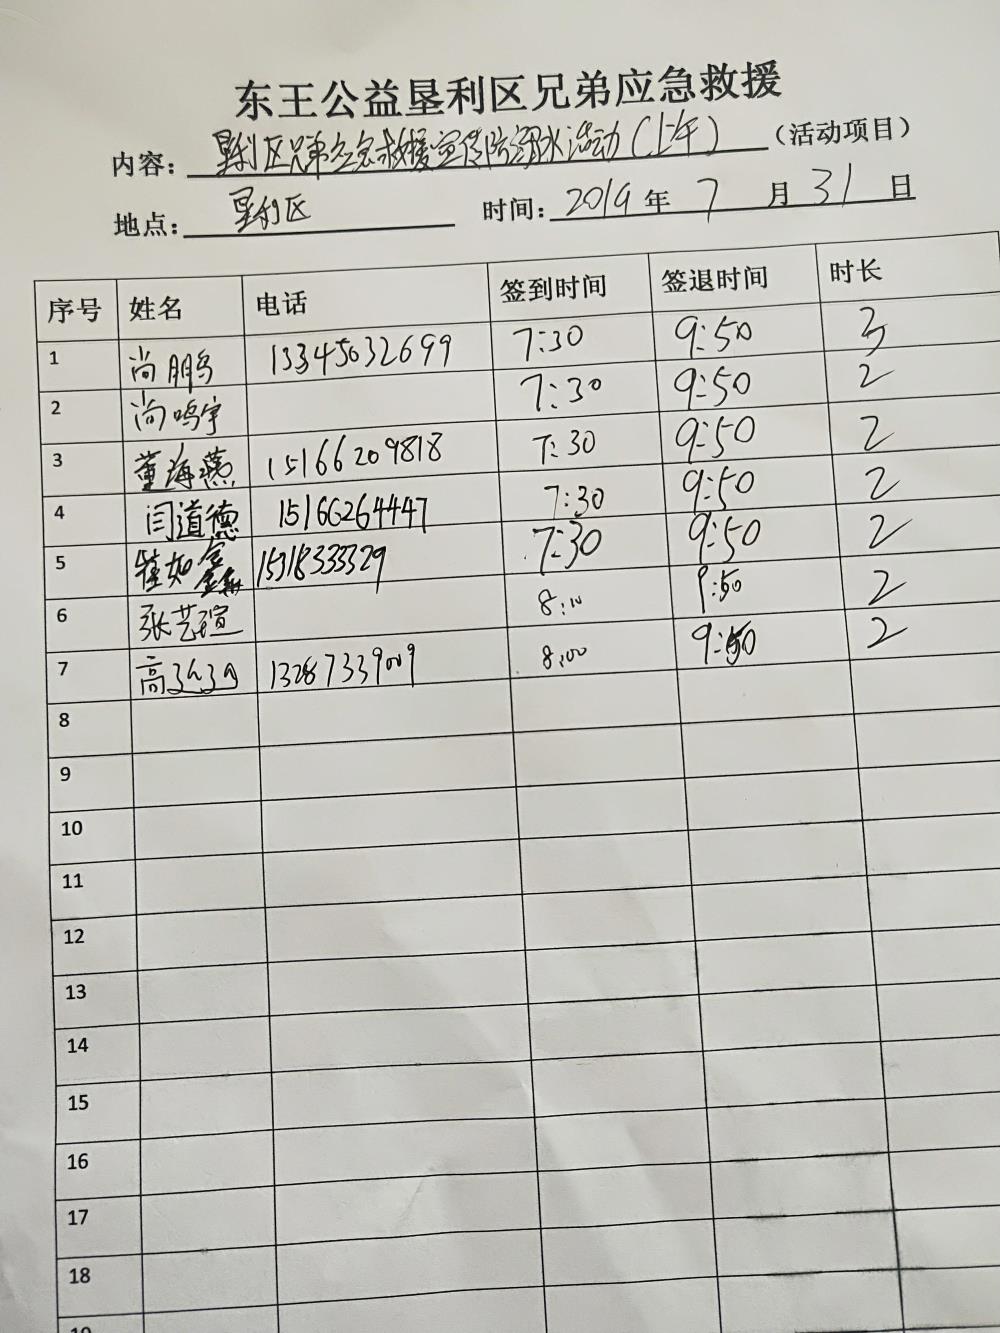 东王公益垦利区兄弟应急救援
内容: 垦利区兄弟应急救援宣传防溺水活动(上午) (活动项目)
地点: 垦利区 时间: 2019 年 7 月 31 日
序号 姓名 电话 签到时间 签退时间 时长
1 尚鹏 13345032699 7:30 9:50 3
2 尚鸣宇 7:30 9:50 2
3 董海燕 15166209818 7:30 9:50 2
4 闫道德 15166264447 7:30 9:50 2
5 15318333329 7:30 9:50 2
6 张艺瑄 8:00 9:50 2
7 高 13287339009 8:00 9:50 2
8
9
10
11
12
13
14
15
16
17
18
19